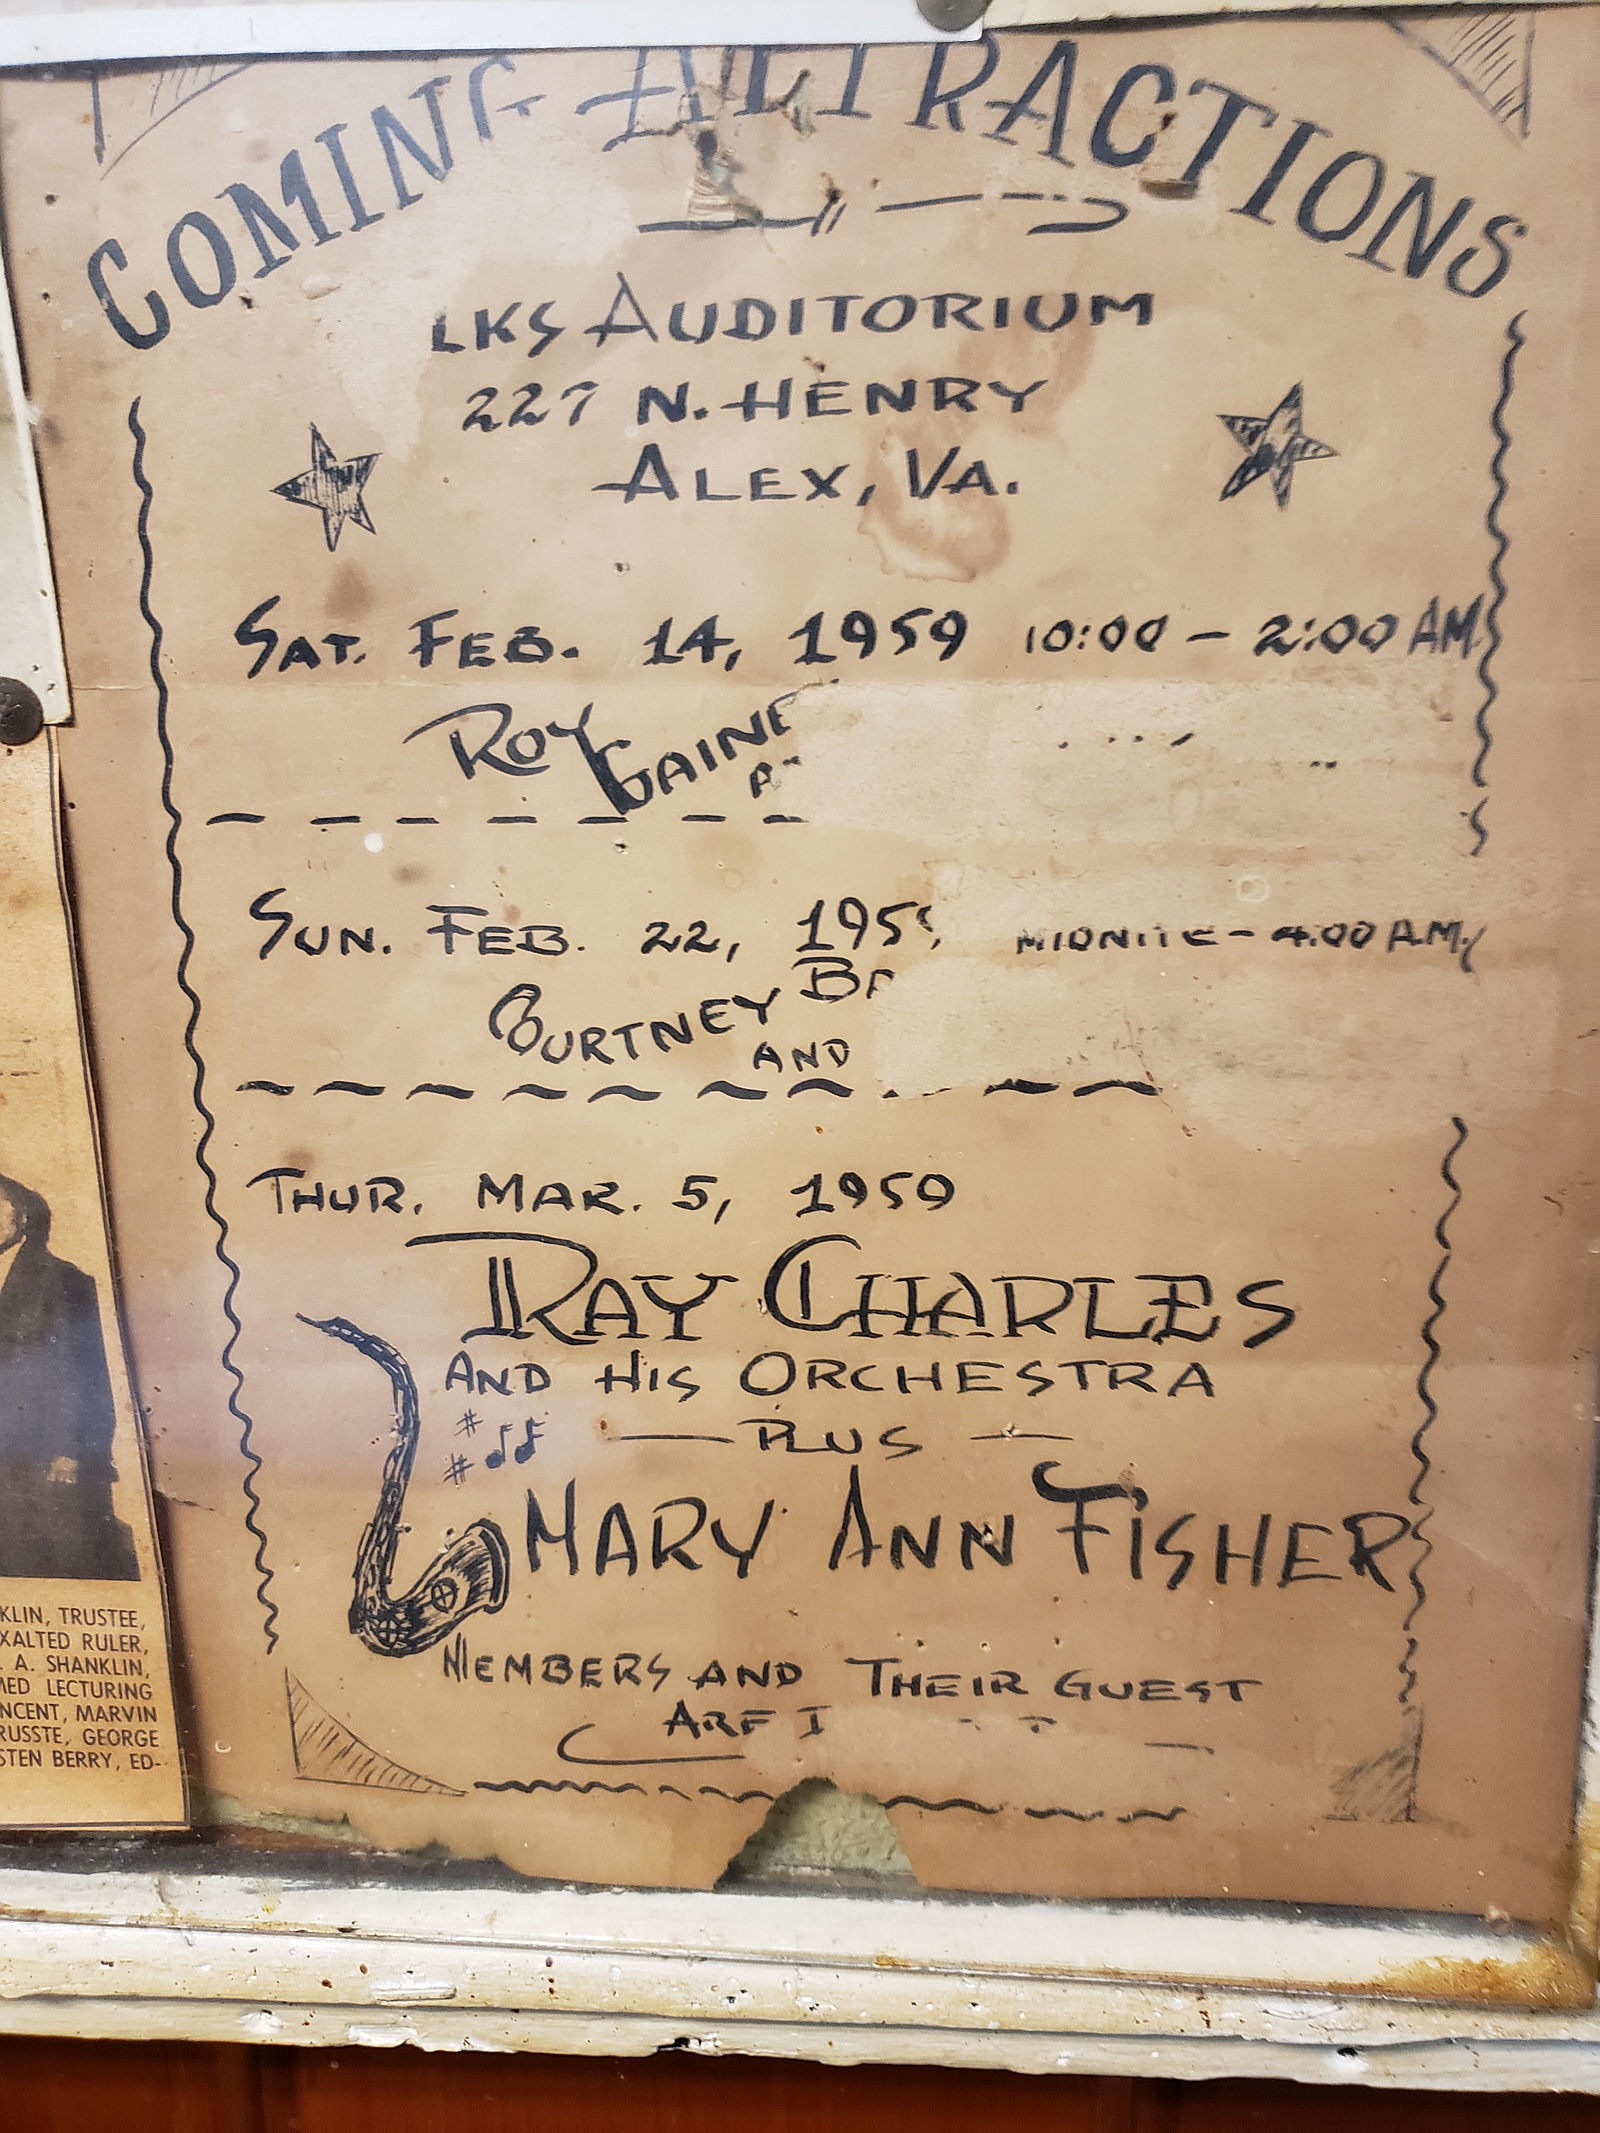 COMING ATTRACTIONS
LKS AUDITORIUM
227 N. HENRY
ALEX, VA.
SAT. FEB. 14, 1959 10:00 - 2:00 AM
ROY GAINE
SUN. FEB. 22, 1959 MIDNITE - 4:00 A.M.
COURTNEY
AND
THUR. MAR. 5, 1959
RAY CHARLES
AND HIS ORCHESTRA
— PLUS —
MARY ANN FISHER
MEMBERS AND THEIR GUEST
ARE I
KLIN, TRUSTEE,
XALTED RULER,
. A. SHANKLIN,
MED LECTURING
NCENT, MARVIN
RUSSTE, GEORGE
STEN BERRY, ED-